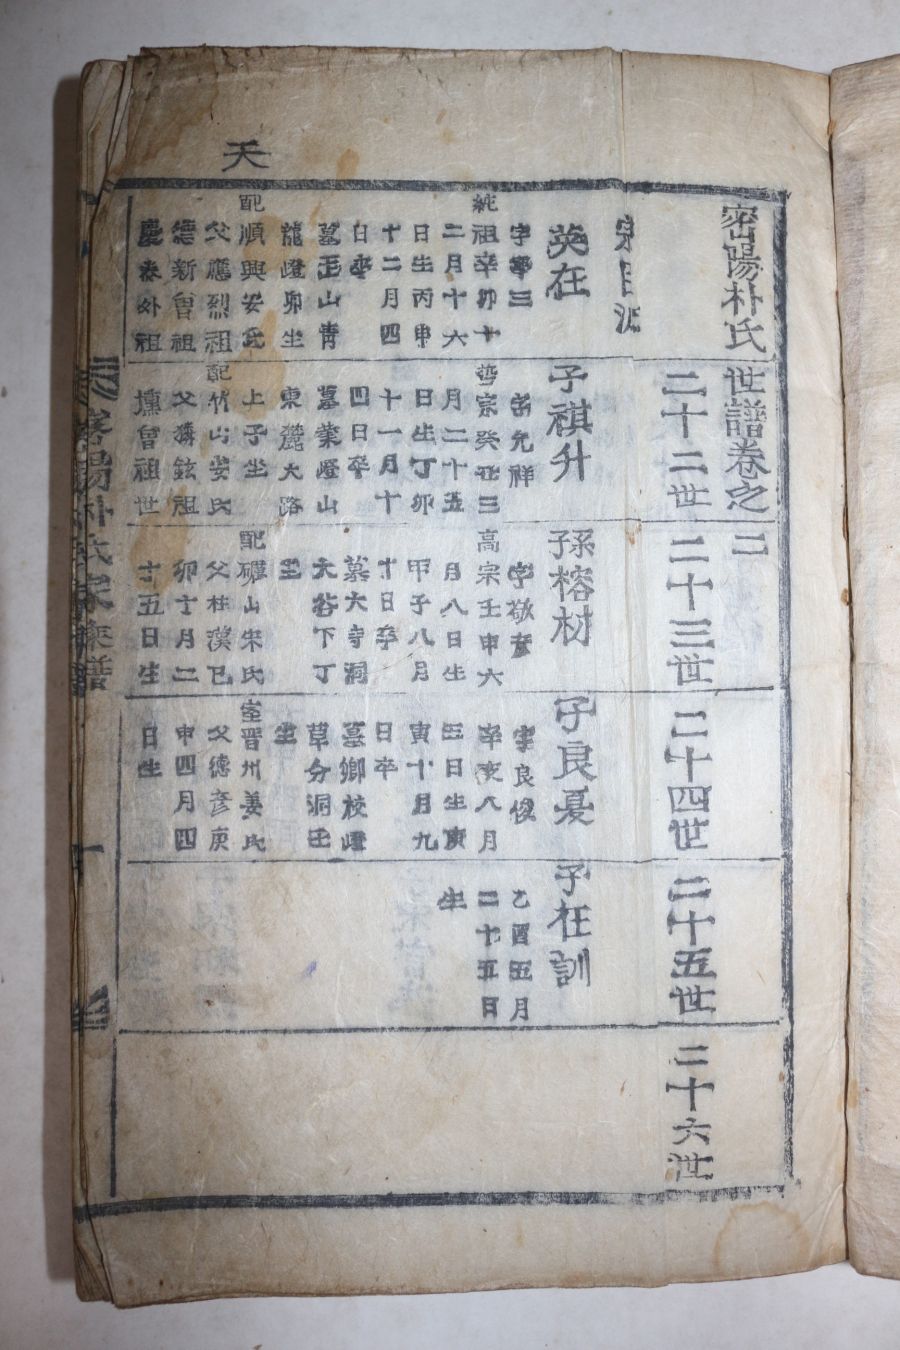 天
密陽朴氏世譜卷之二
二十二世
二十三世
二十四世
二十五世
二十六世
英在
純祖辛卯十
二月十六
日生丙申
十二月四
日卒
龍嶝卯坐
配順興安氏
父應烈祖
德新曾祖
外祖
子祺升
字允祥
哲宗癸丑三
月二十五
日生丁卯
十一月十
四日卒
墓業嶝山
東麓大路
上子坐
配竹山安氏
曾祖世
孫榕材
字敬彦
高宗壬申六
月八日生
甲子八月
十日卒
墓大寺洞
大谷下丁
坐
配礪山宋氏
父柱漢己
卯十月二
十五日生
子良憂
字良俊
辛亥八月
五日生庚
寅十月九
日卒
墓鄉校嶝
草分洞壬
坐
室晋州姜氏
父德彦庚
申四月四
日生
子在訓
乙酉五月
二十五日
生
密陽朴氏家乘譜